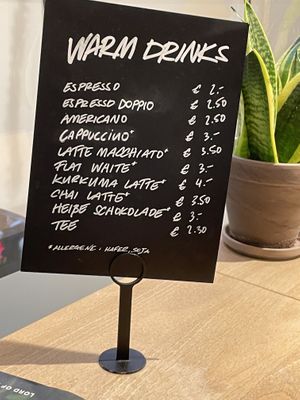 WARM DRINKS
ESPRESSO € 2.-
ESPRESSO DOPPIO € 2.50
AMERICANO € 2.50
CAPPUCCINO* € 3.-
LATTE MACCHIATO* € 3.50
FLAT WHITE* € 3.-
KURKUMA LATTE* € 4.-
CHAI LATTE* € 3.50
HEIẞE SCHOKOLADE* € 3.-
TEE € 2.50
*ALLERGENE: HAFER, SOJA
LORD OF